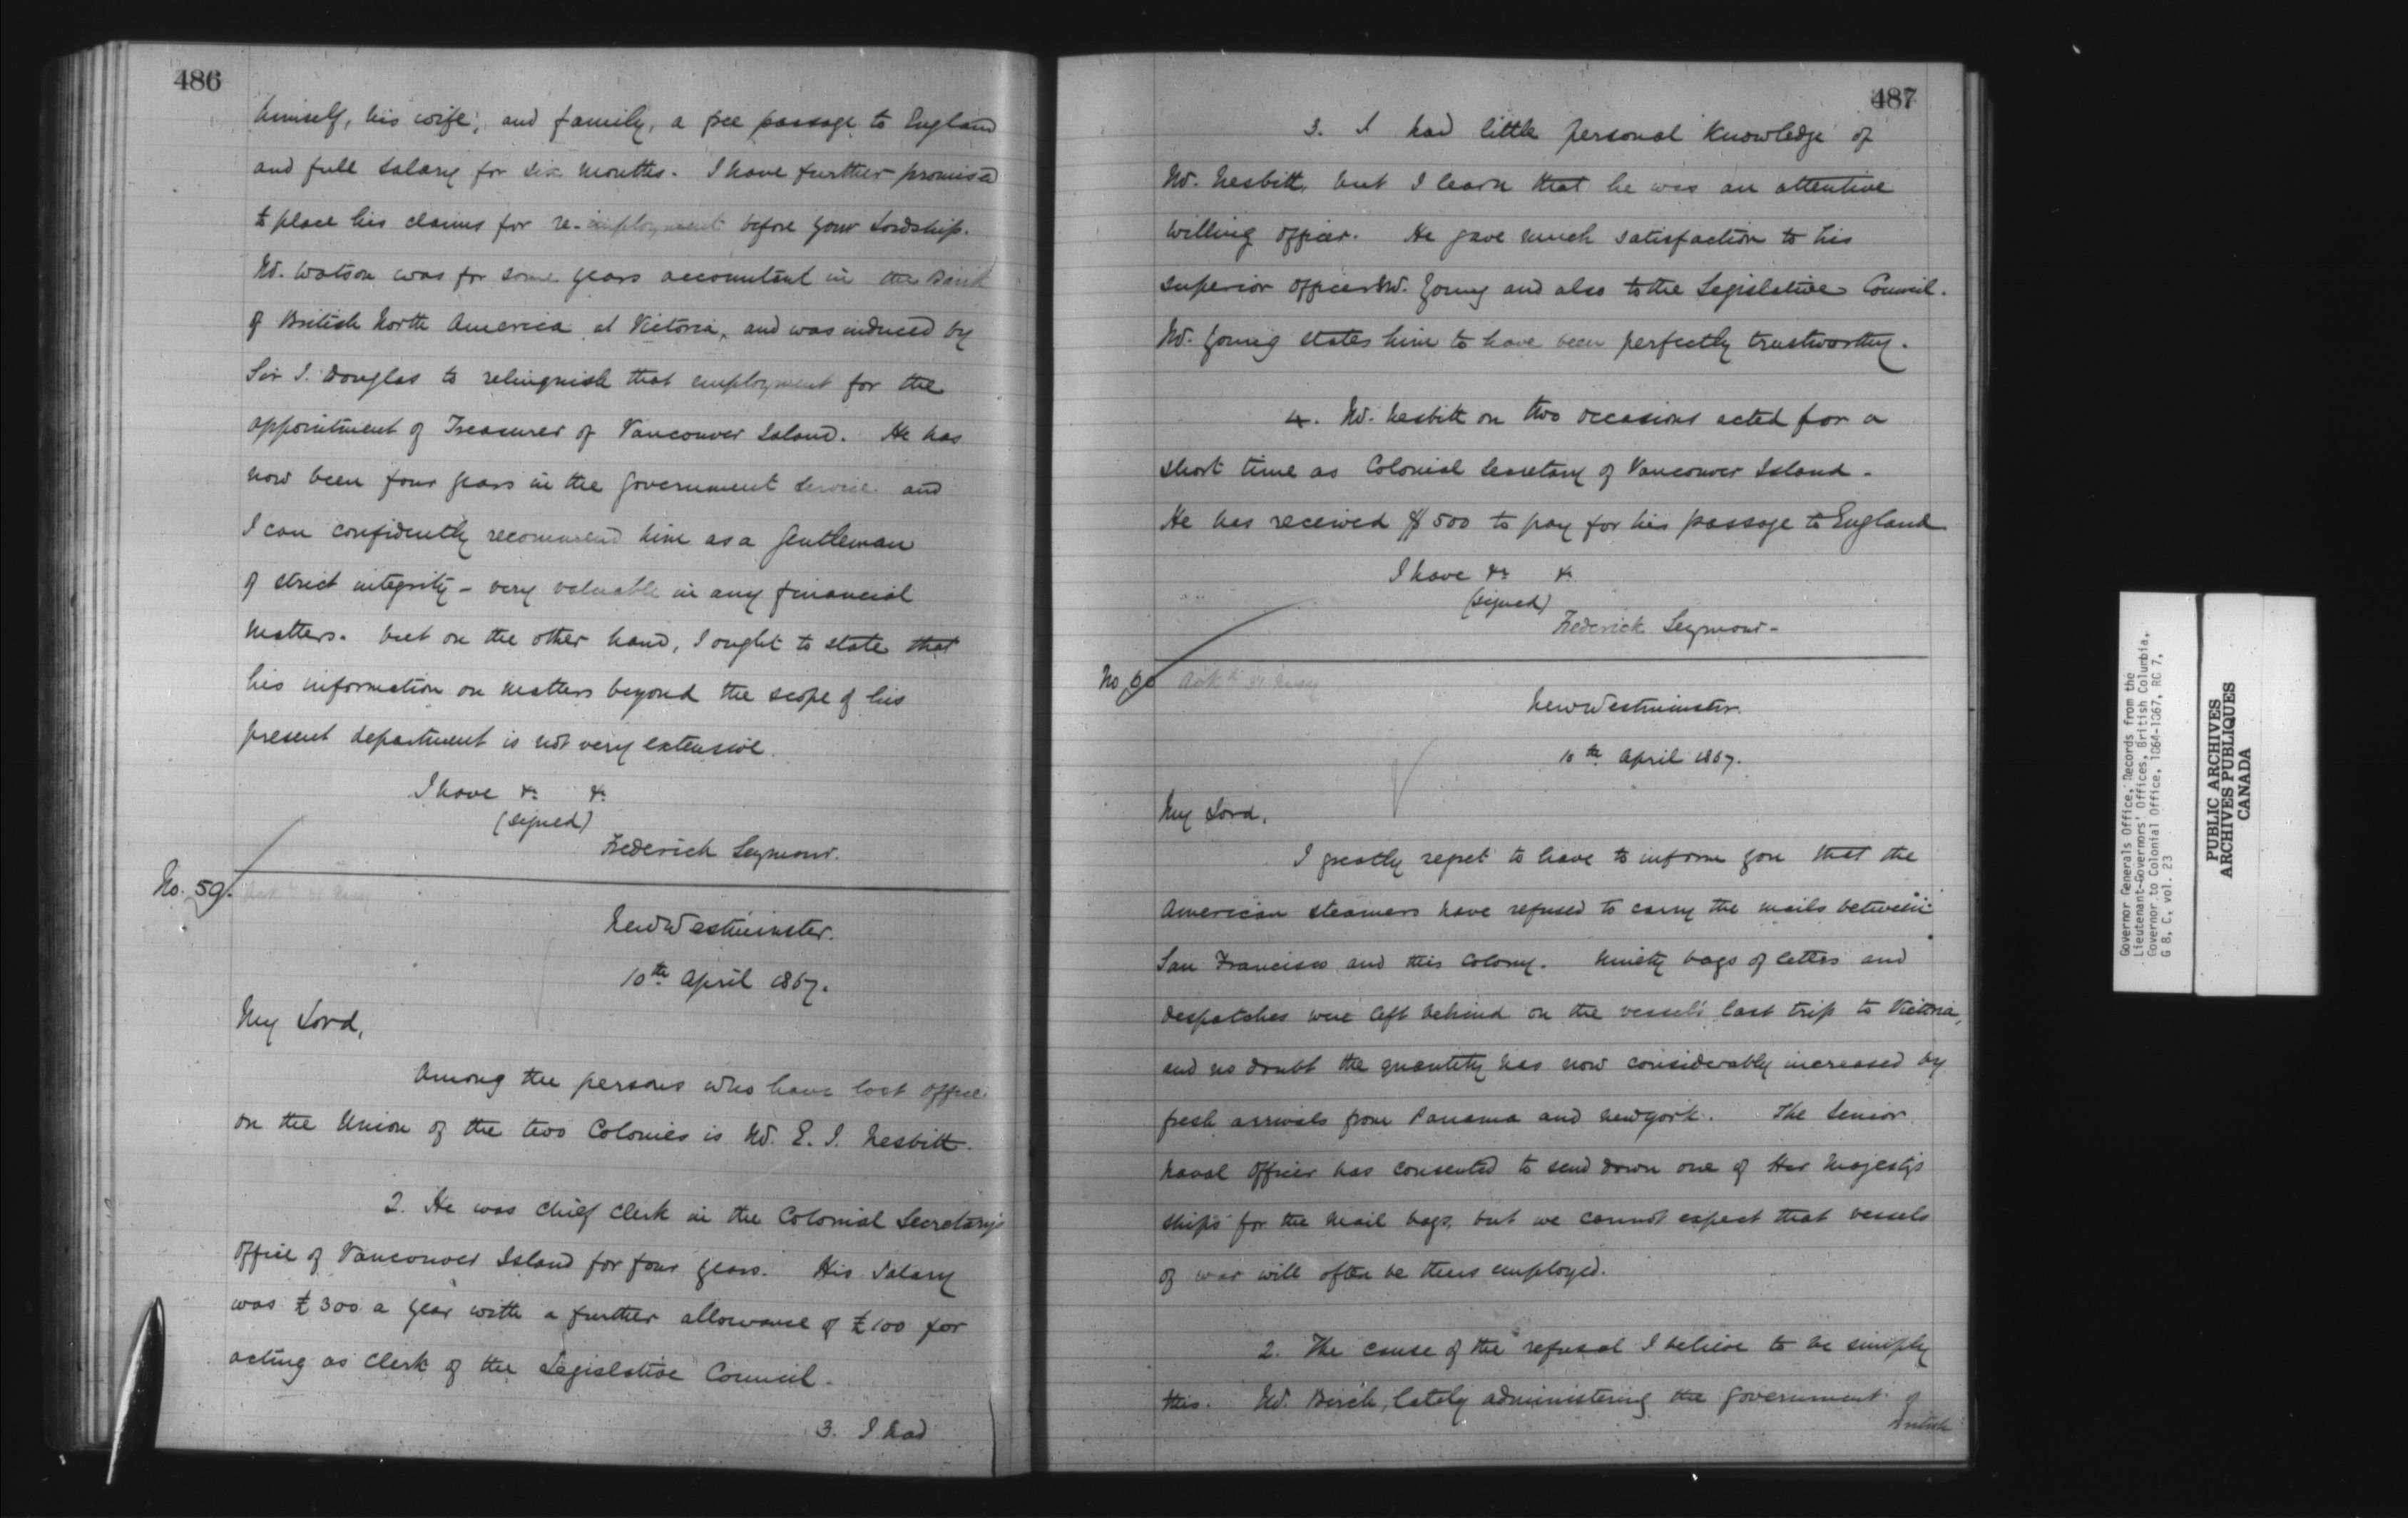 486
himself, his wife, and family, a free passage to England
and full salary for six months. I have further promised
to place his claims for re-employment before your Lordship.
Mr. Watson was for some years accountant in the Bank
of British North America at Victoria, and was induced by
Sir J. Douglas to relinquish that employment for the
appointment of Treasurer of Vancouver Island. He has
now been four years in the Government Service and
I can confidently recommend him as a gentleman
of strict integrity - very valuable in any financial
matters. but on the other hand, I ought to state that
his information on matters beyond the scope of his
present department is not very extensive.
I have &c &c
(signed)
Frederick Seymour.
No. 59.
Ackd 31 May
New Westminster.
10th April 1867.
My Lord,
Among the persons who have lost office
on the Union of the two Colonies is Mr. E. J. Nesbitt.
2. He was chief clerk in the Colonial Secretary's
Office of Vancouver Island for four years. His Salary
was £300 a year with a further allowance of £100 for
acting as Clerk of the Legislative Council.
3. I had
487
3. I had little personal knowledge of
Mr. Nesbitt, but I learn that he was an attentive
willing officer. He gave much satisfaction to his
superior officer Mr. Young and also to the Legislative Council.
Mr. Young states him to have been perfectly trustworthy.
4. Mr. Nesbitt on two occasions acted for a
short time as Colonial Secretary of Vancouver Island.
He has received $500 to pay for his passage to England
I have &c &c
(signed)
Frederick Seymour-
No 60
Ackd 31 May
New Westminster.
10th April 1867.
My Lord,
I greatly regret to have to inform you that the
American steamers have refused to carry the mails between
San Francisco and this Colony. Ninety bags of letters and
despatches were left behind on the vessel's last trip to Victoria,
and no doubt the quantity has now considerably increased by
fresh arrivals from Panama and New York. The Senior
Naval Officer has consented to send down one of Her Majesty's
ships for the mail bags, but we cannot expect that vessels
of war will often be thus employed.
2. The cause of the refusal I believe to be simply
this. Mr. Birch, lately administering the Government of
British
Governor Generals Office, Records from the
Lieutenant-Governors' Offices, British Columbia,
Governor to Colonial Office, 1864-1867, RG 7,
G 8, C, vol. 23
PUBLIC ARCHIVES
ARCHIVES PUBLIQUES
CANADA